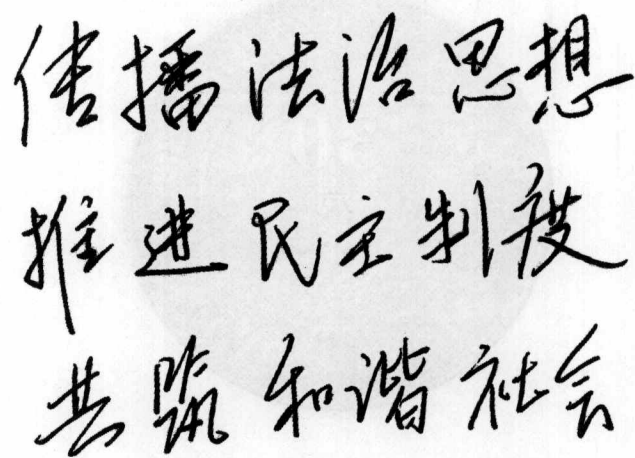 传播法治思想
推进民主制度
共筑和谐社会